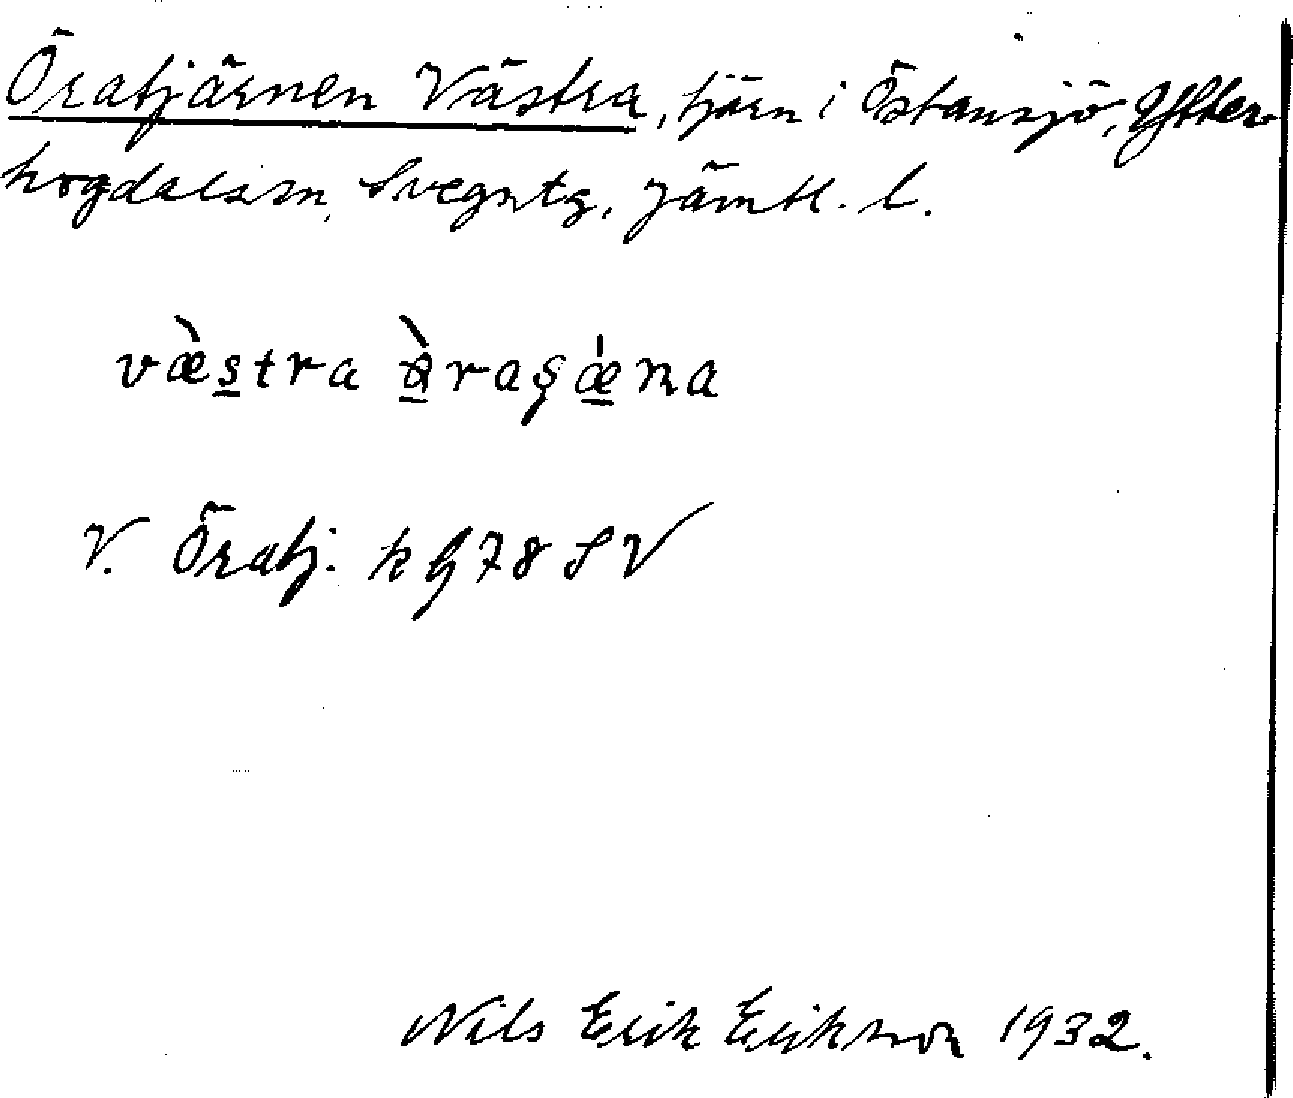 Öratjärnen Västra, tjärn i Östansjö, Ytter-
hogdals sn, Svegs tg, Jämtl. l.
væ̀stra ø̀raʂǽna
V. Öratj. k h 78 SV
Nils Erik Eriksson 1932.